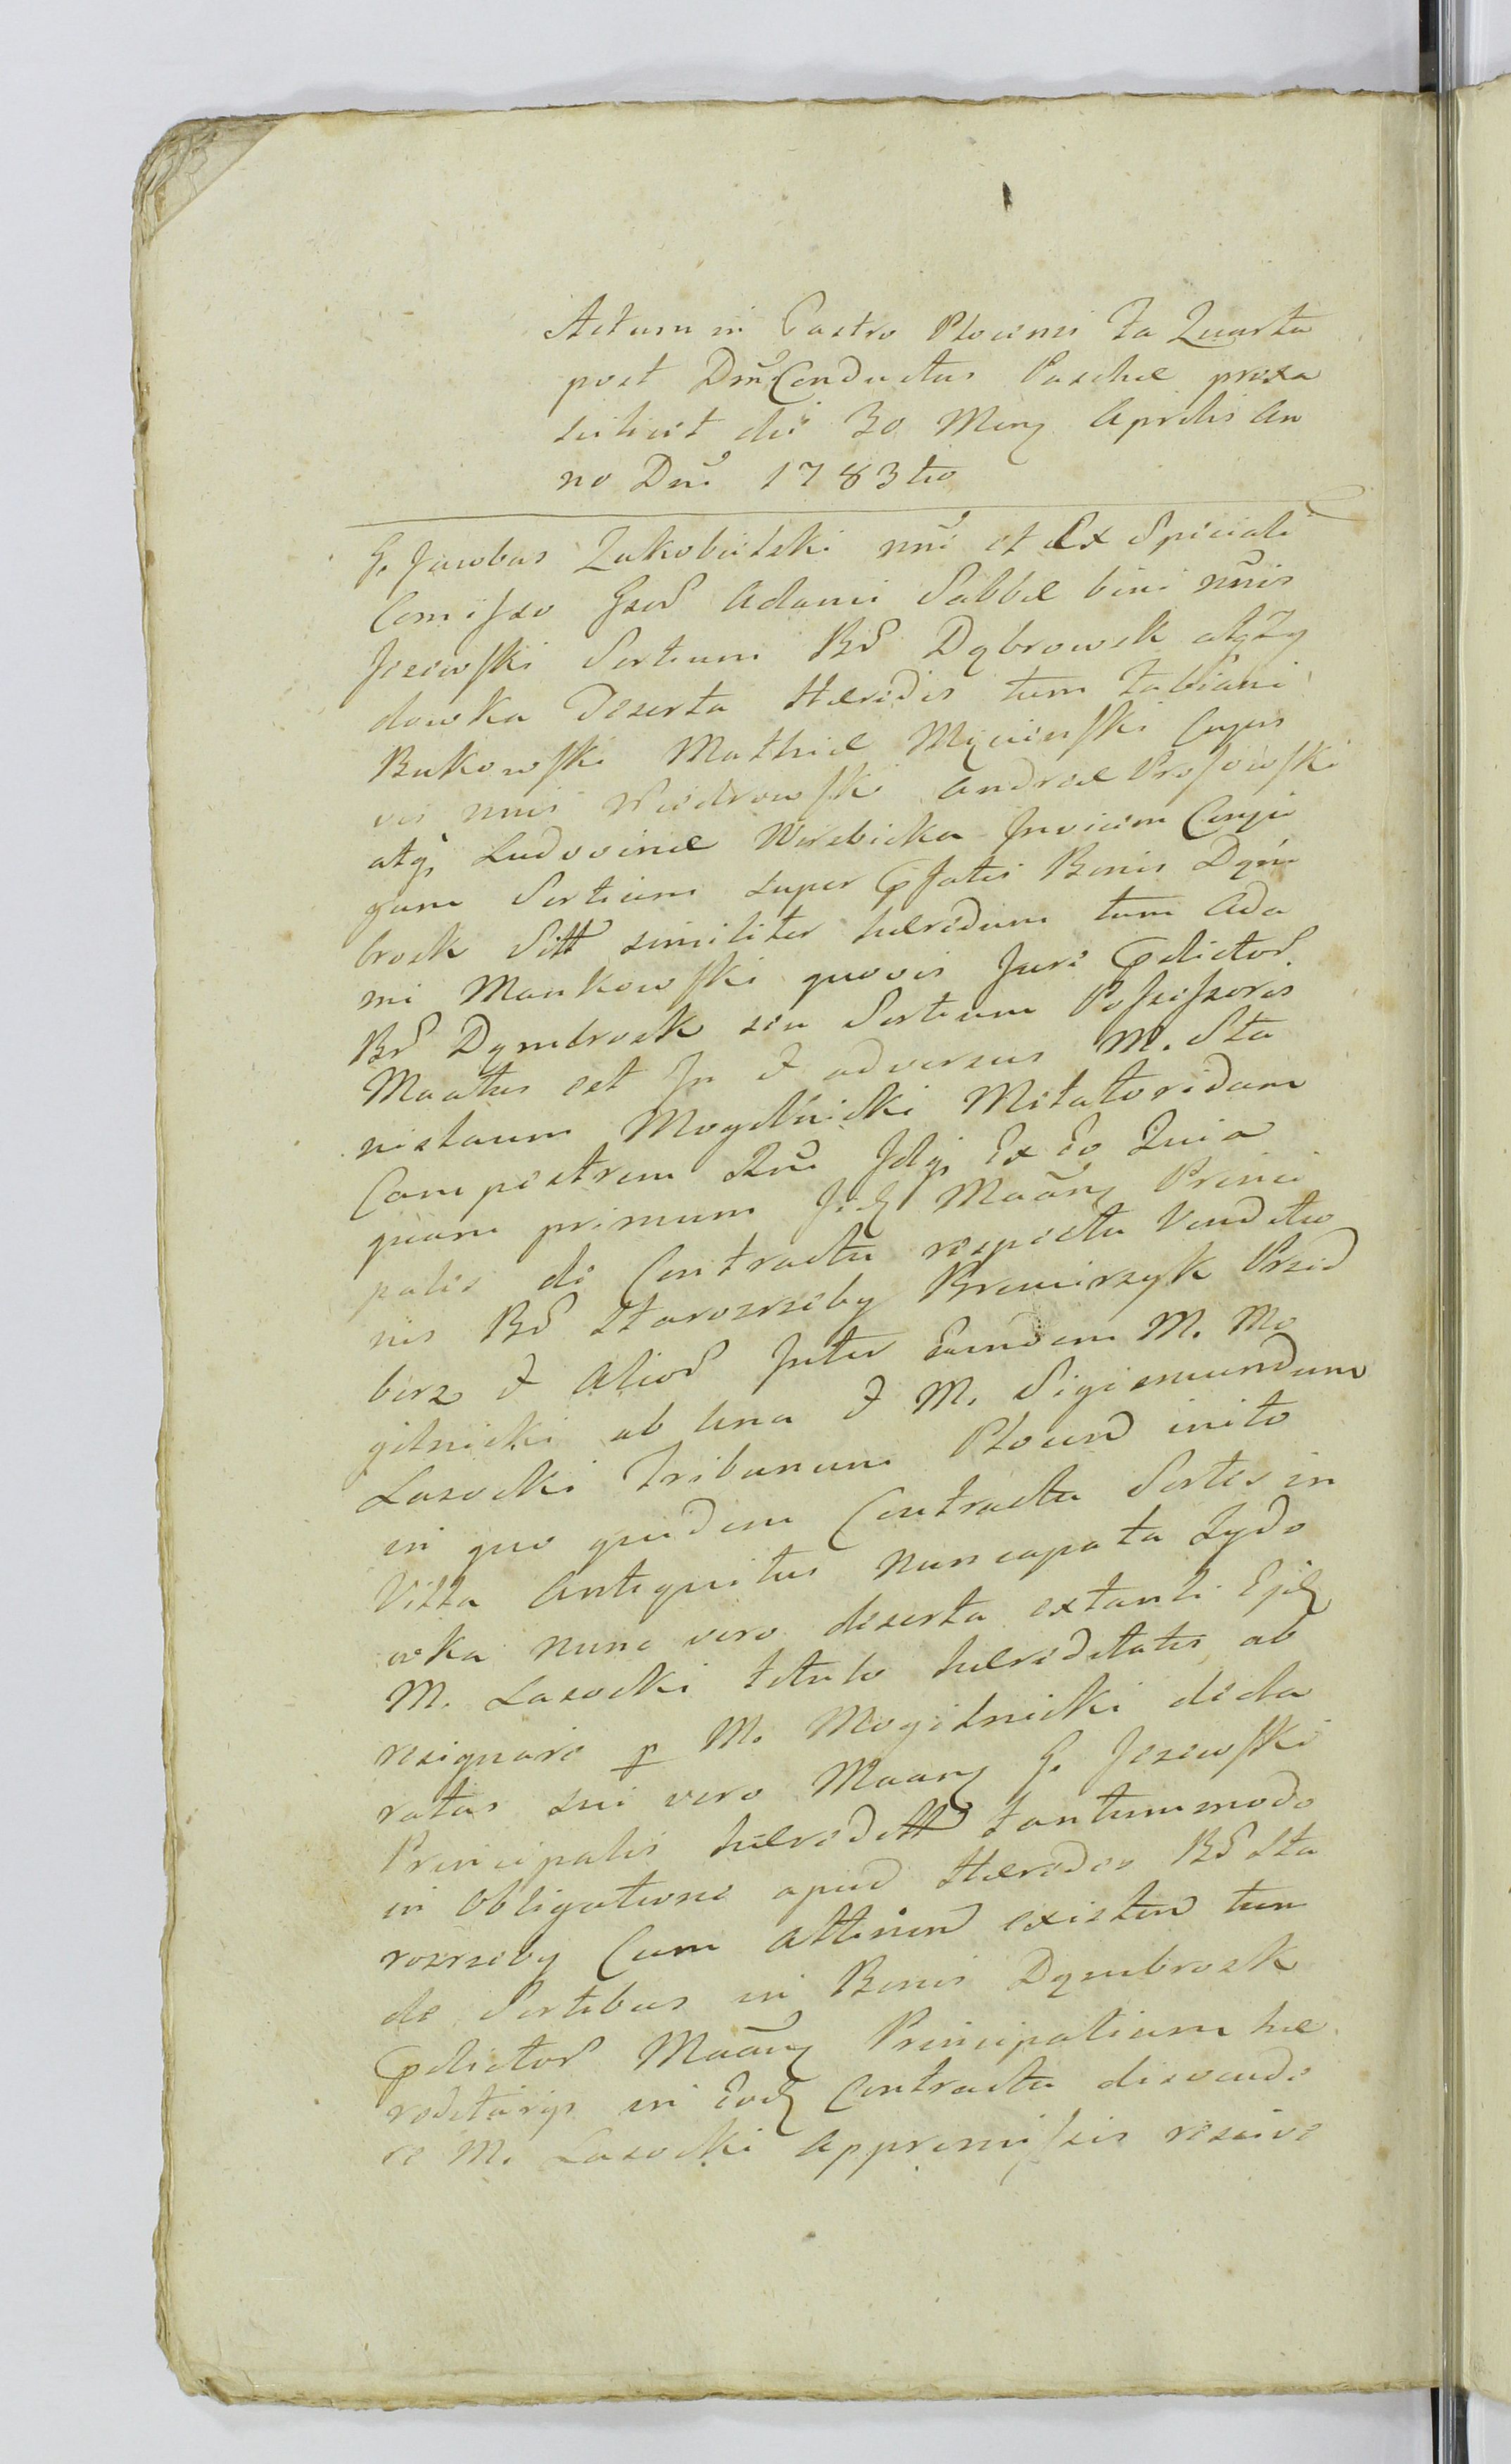 Actum in Castro Plocensi Fa Quarta
post Dnĩ Conductus Paschæ proxa
scilicet die 30 Mens Aprilis An
no Dnĩ 1783tio
G. Jacobus Zakobielski nnẽ et Ex Speciali
Comisso Gsod Adami Sabbæ bini nnis
Jezewski Sortium Bd Dąbrowsk atq Zy
dowka Deserta Hæredis tum Fabiani
Bukowski Mathiæ Mycielski Cujus
vis nnis Andreæ Prosowski
atq Ludovinæ Wierzbicka Invicem Conju
gum Sortium super Pfatis Bonis Dąm
brosk Sitt similiter hæredum tum Ada
mi Mankowski quovis Jure Pdictor
Bd Dymbrosk seu Sortium Possessores
Mantus est In & adversus M. Sta
nislaum Mogilnicki Metatoridam
Campestrem Idq Ex Eo Quia
quam primum Jid Maang Princi
palis de Contractu respectu Venditio
nis Bd Starozreby Bromierzyk Przed
borz & Aliod Inter Eundem M. Mo
gilnicki ab una & M. Sigismundum
Lasocki Tribunum Plocend inito
in quo quidem Contractu Sortes in
Villa Antiquitus nuncupata Zydo
wka nunc vero deserta extanti Ejd
M. Lasocki titulo hæreditatis ab
resignare p M. Mogilnicki decla
ratas sui vero Maang G. Jezewski
Principalis hæreditt tantummodo
in Obligatione apud Hæredes Bd Sta
rozreby Cum Attinen existen tum
de Sortibus in Bonis Dymbrosk
Pdictor Maang Principalium hæ
reditarys in Eod Contractu disvende
re M. Lasocki Appromissis rescive